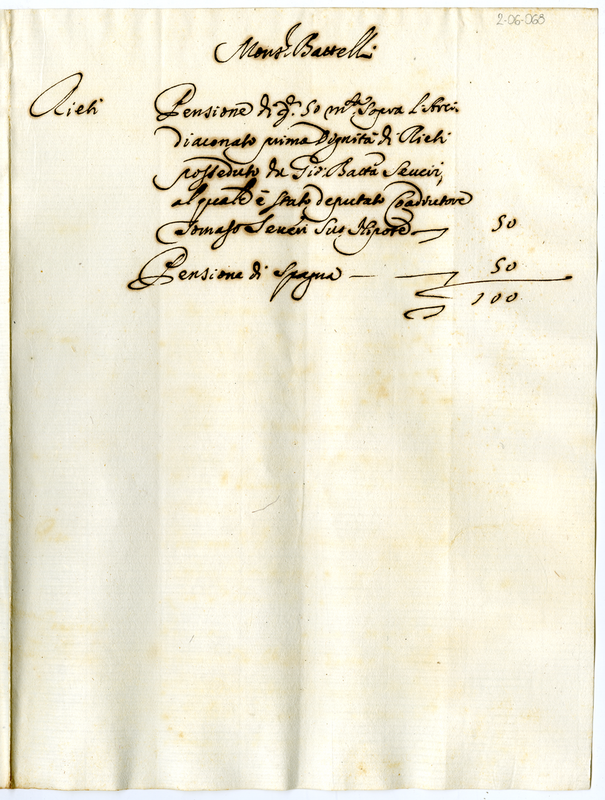 2-06-068
Mons.r Battelli
Rieti
Pensione di 50 m.ta Sopra l'Arci-
diaconato prima Dignità di Rieti
posseduto da Gio: Batta Severi,
al quale è stato deputato Coadiutore
Tomaso Severi Suo Nipote 50
Pensione di Spagna 50
100